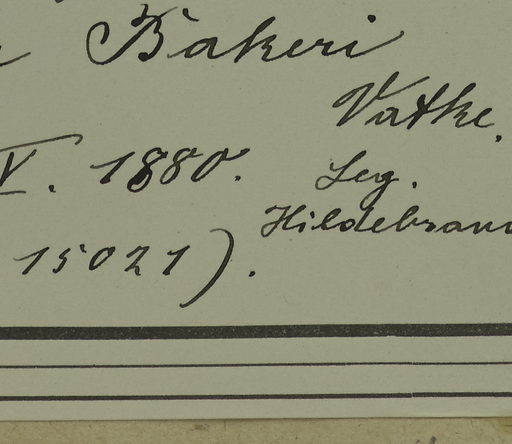 Bakeri
Vatke.
V. 1880. Leg.
Hildebran
15021).